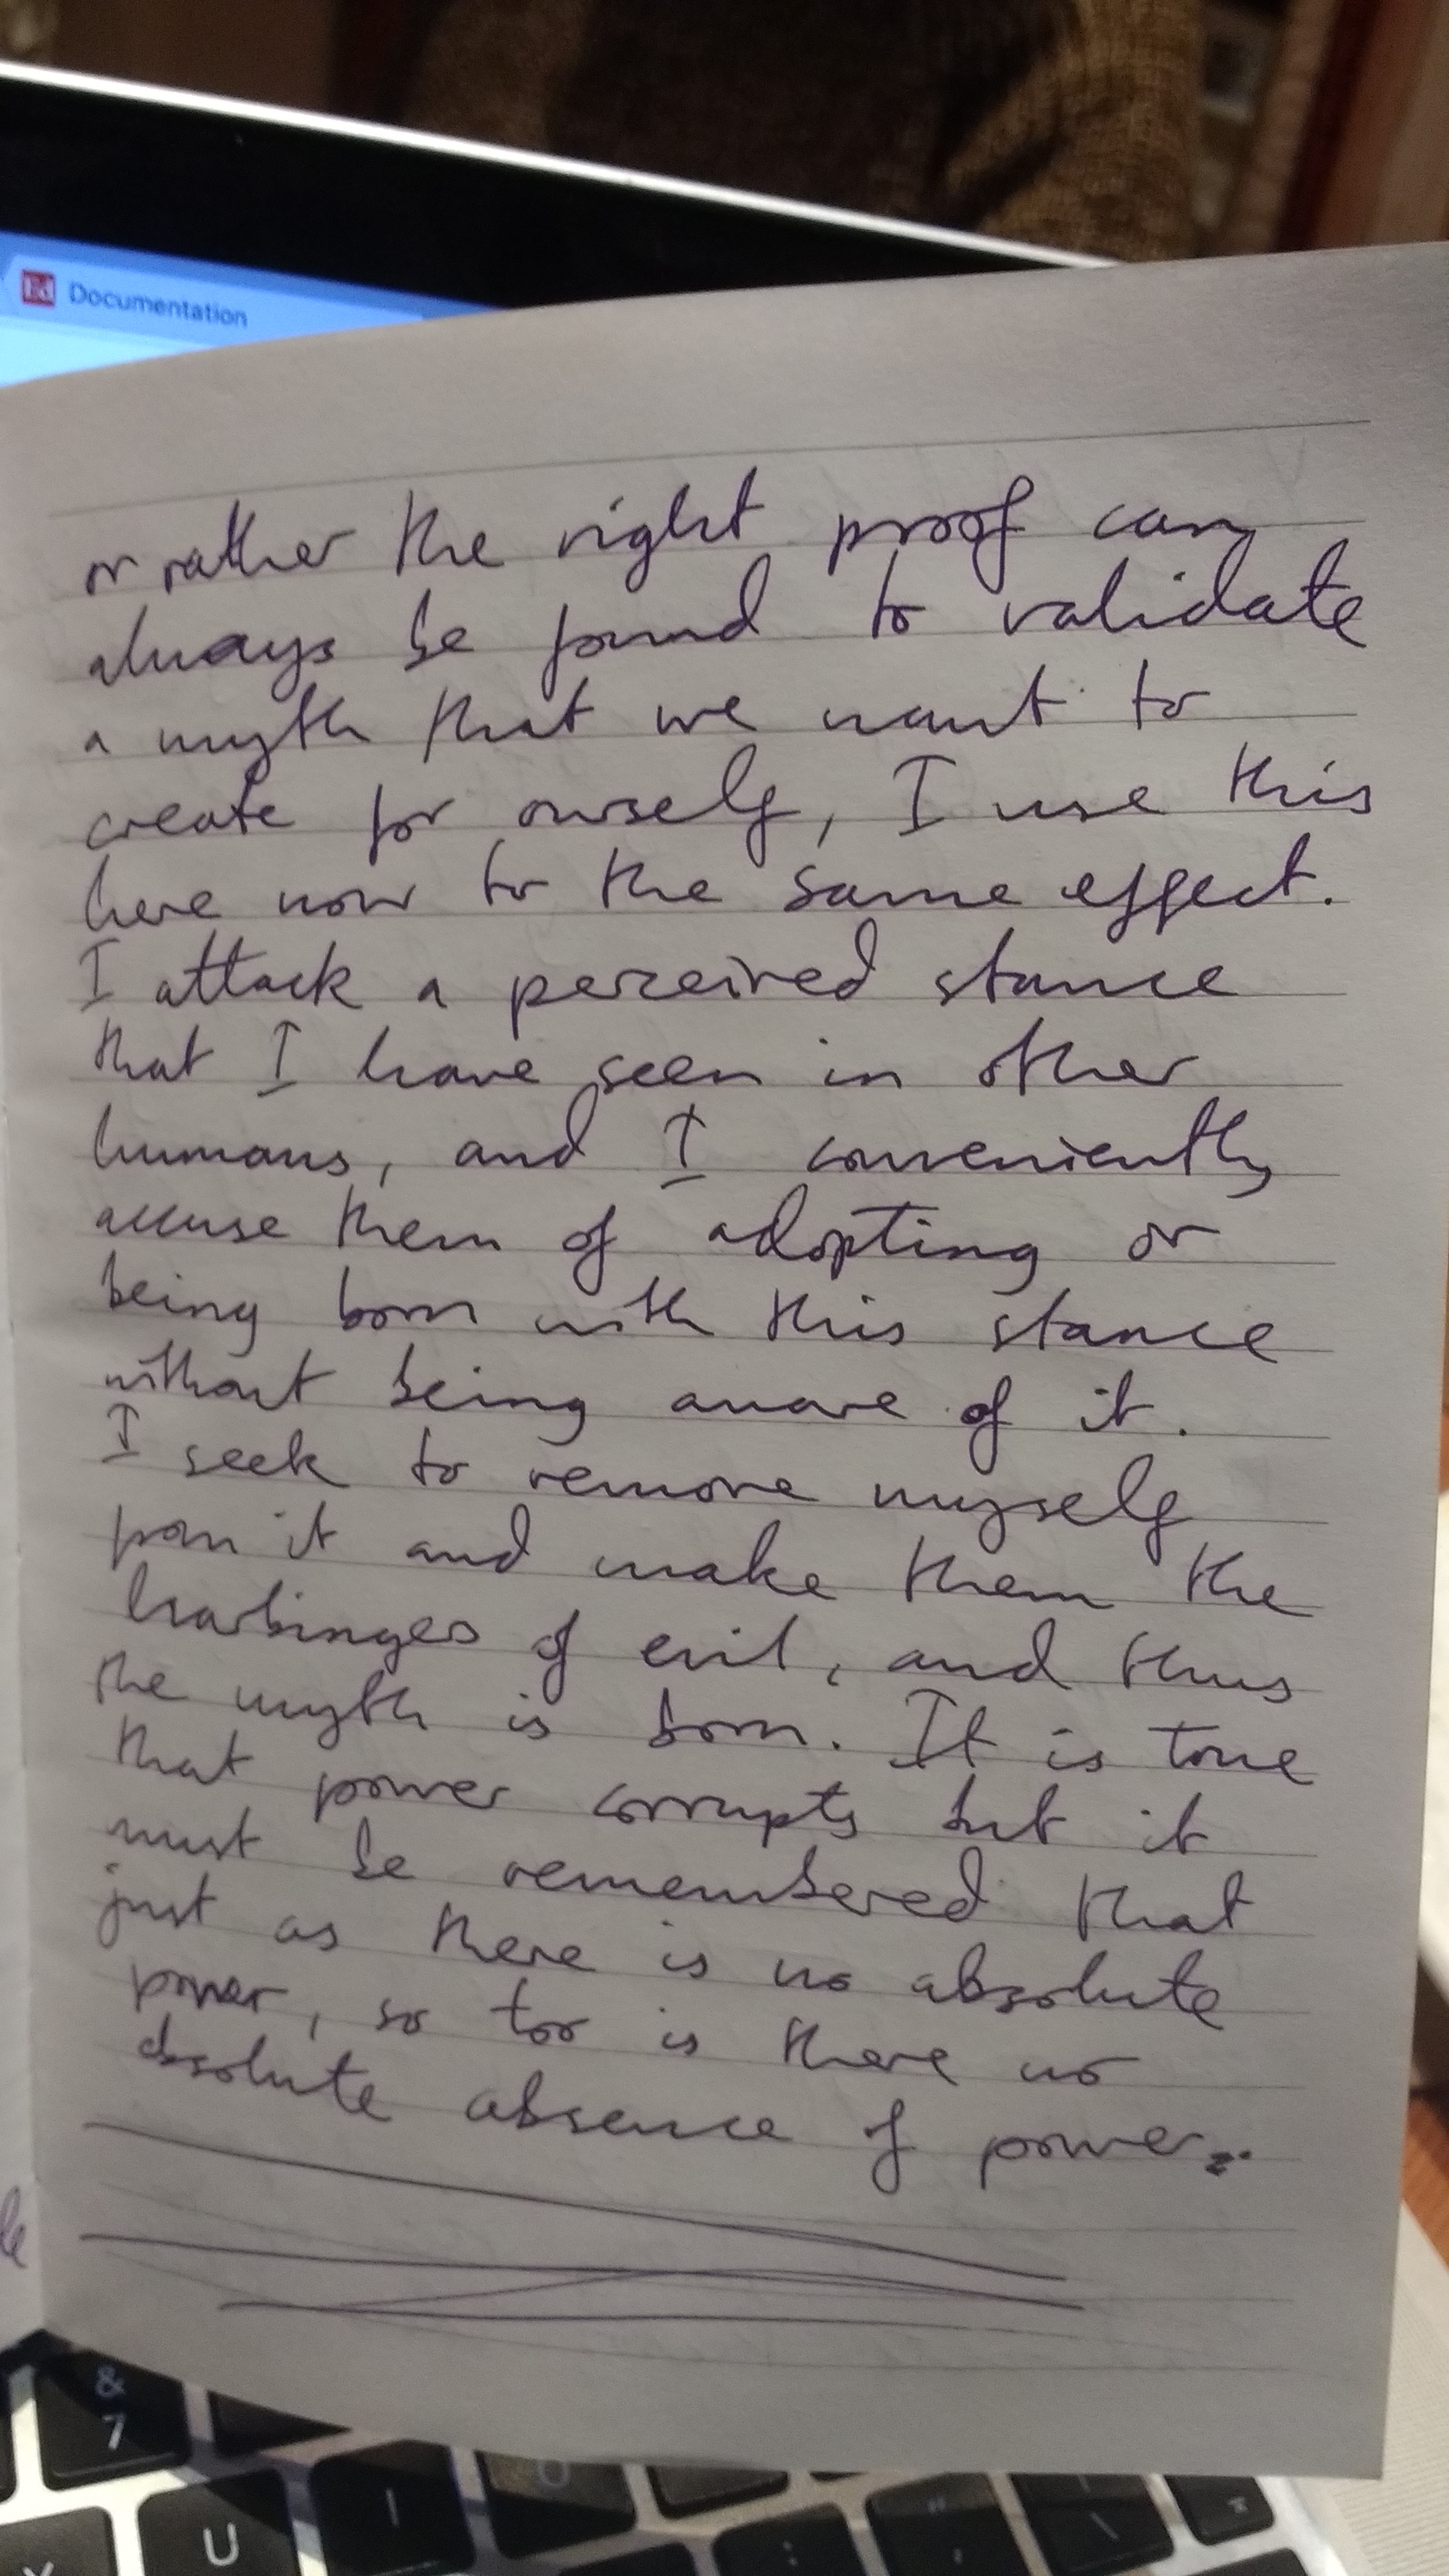 Ed Documentation
or rather the right proof can
always be found to validate
a myth that we want to
create for ourself, I use this
here now to the same effect.
I attack a perceived stance
that I have seen in other
humans, and I conveniently
accuse them of adopting or
being born with this stance
without being aware of it.
I seek to remove myself
from it and make them the
harbinges of evil, and thus
the myth is born. It is true
that power corrupts but it
must be remembered that
just as there is no absolute
power, so too is there no
absolute absence of power.
&
7
U
I
O